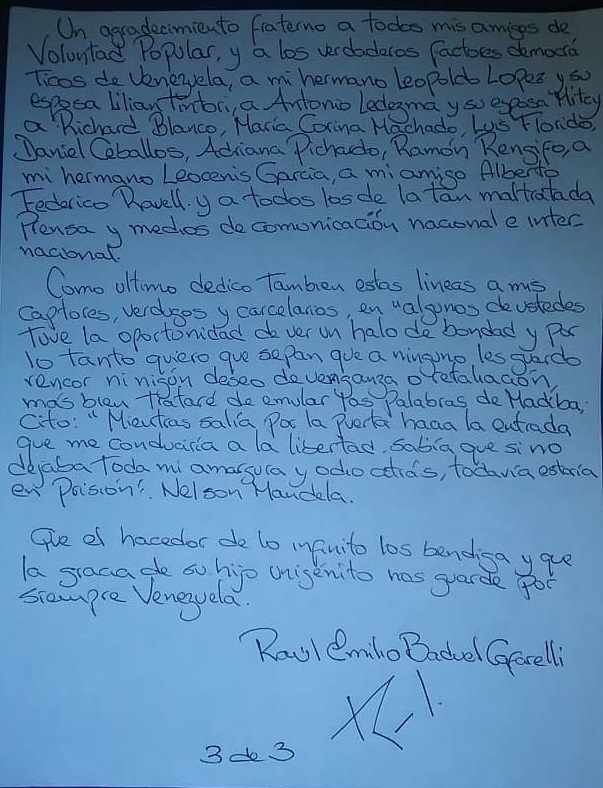 Un agradecimiento fraterno a todos mis amigos de
Voluntad Popular, y a los verdaderos factores democrá
ticos de Venezuela, a mi hermano Leopoldo Lopez y su
esposa Lilian Tintori, a Antonio Ledezma y su esposa Mitcy
a Richard Blanco, María Corina Machado, Luis Florido,
Daniel Ceballos, Adriana Pichardo, Ramón Rengifo, a
mi hermano Leocenis Garcia, a mi amigo Alberto
Federico Ravell. y a todos los de la tan maltratada
Prensa y medios de comunicación nacional e inter-
nacional.
Como ultimo dedico Tambien estas lineas a mis
captores, verdugos y carcelarios, en "algunos de ustedes
Tuve la oportunidad de ver un halo de bondad y por
lo tanto quiero que sepan que a ninguno les guardo
rencor ni nigún deseo de venganza o retaliación,
más bien tratard de emular las Palabras de Madiba,
Cito: "Mientras salía por la puerta hacia la entrada
que me conduciría a la libertad. Sabía que si no
dejaba Toda mi amargura y odio atrás, todavía estaría
en Prisión". Nelson Mandela.
Que el hacedor de lo infinito los bendiga y que
la gracia de su hijo unigénito nos guarde por
siempre Venezuela.
Raúl Emilio Baduel Cafarelli
3 de 3